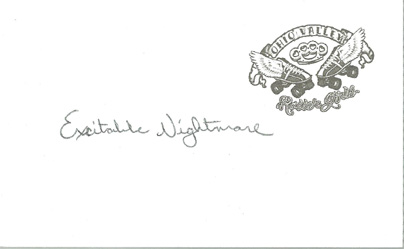 OHIO VALLEY
Roller Girls
Excitable Nightmare